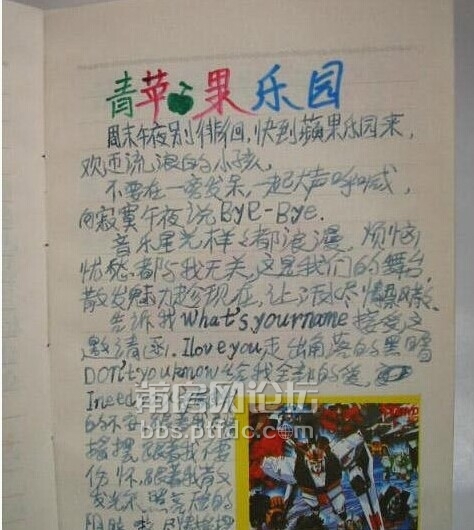 青苹果乐园
周末午夜别徘徊,快到蘋果乐园来,
欢迎流浪的小孩。
不要在一旁发呆,一起大声呼喊,
向寂寞午夜说 Bye-Bye.
音乐星光样々都浪漫。烦恼
忧愁都与我无关,这是我们的舞台,
散发魅力趁现在,让汗水尽情飘散。
告诉我 What's your name 接受这
邀请函. I love you 走出角落的黑暗
DON't you know 给我全部的愛,
I need
的不安
摇摆,跟着我不要
伤怀,跟着我散
发光 照亮 的
尽情摇摆
莆房网论坛
bbs.ptfdc.com